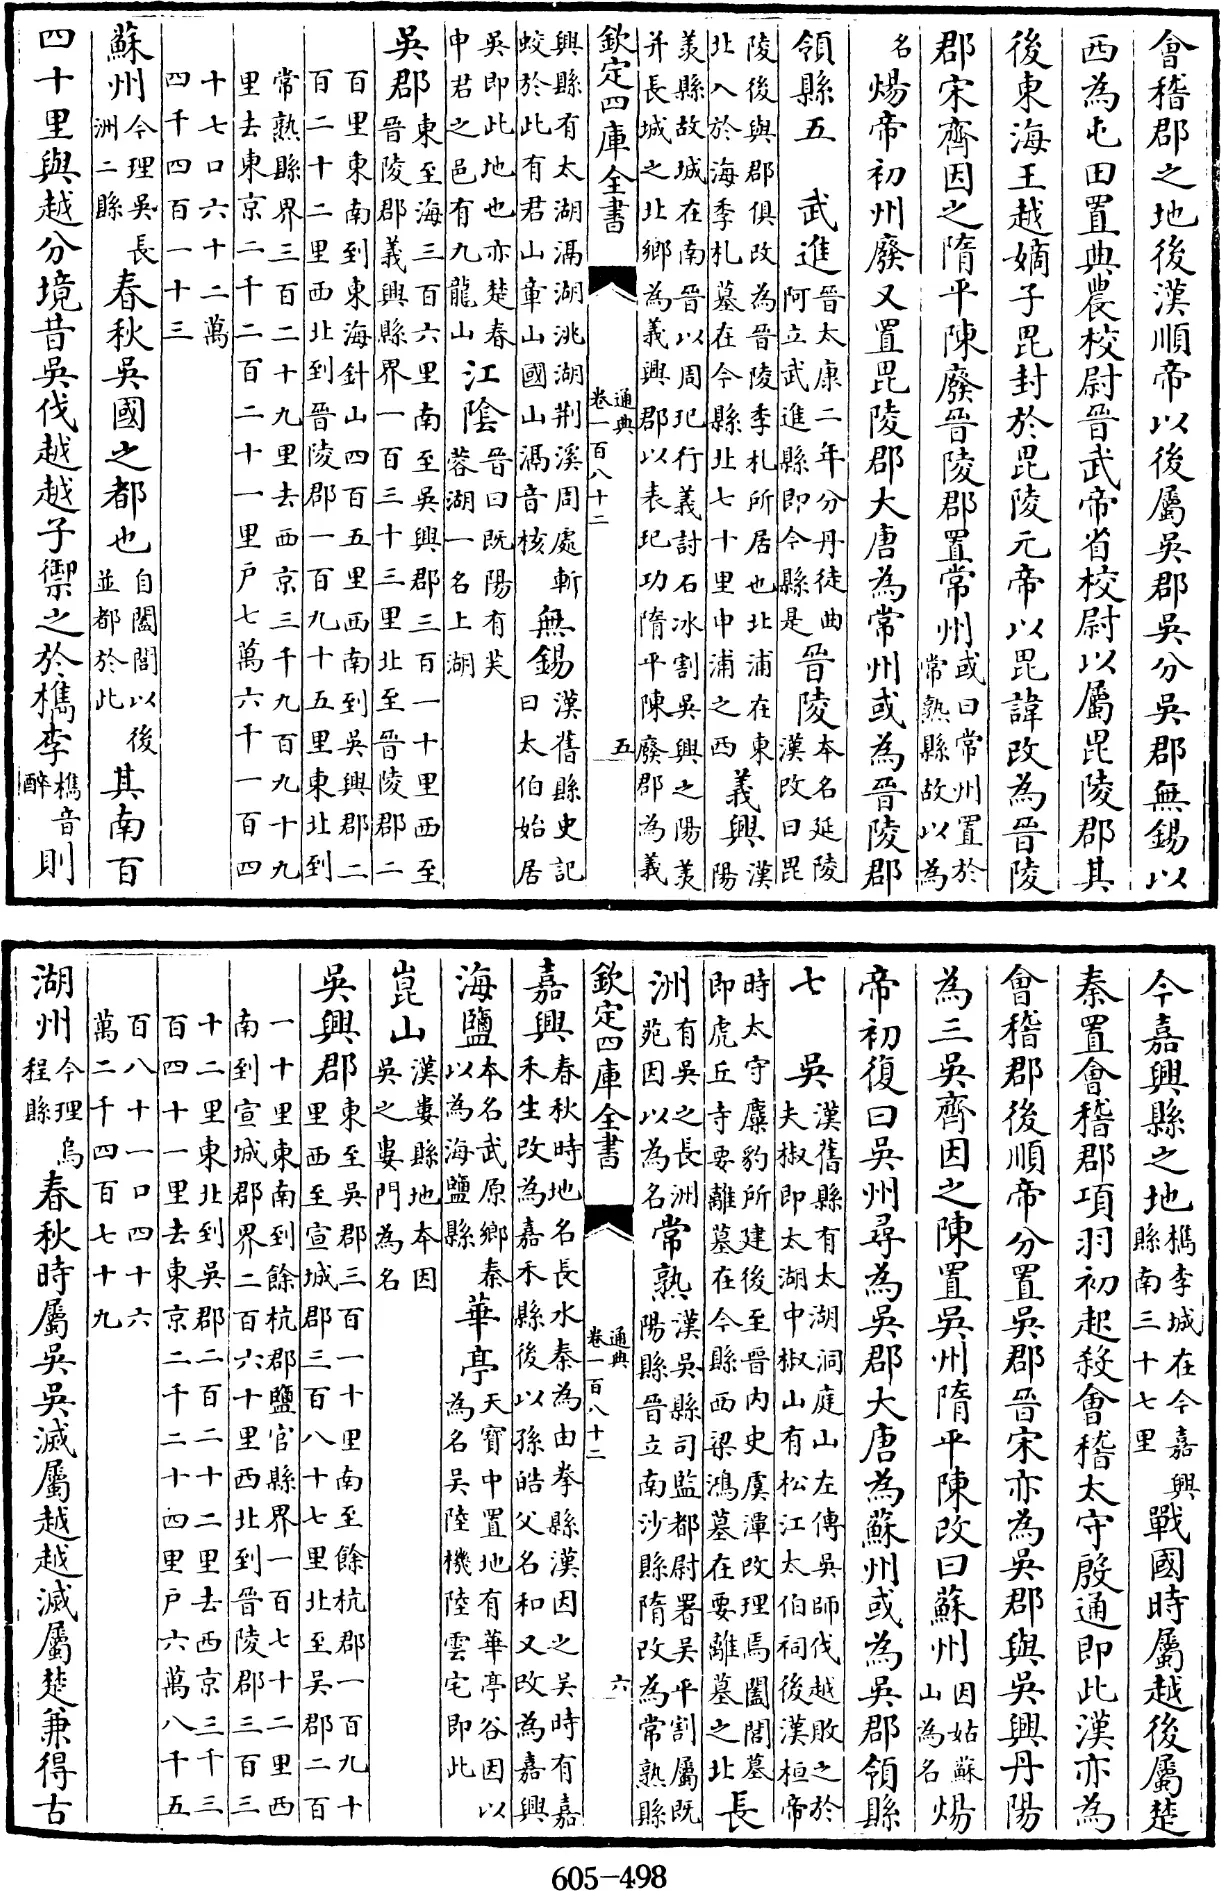 會稽郡之地後漢順帝以後屬吳郡吳分吳郡無錫以
西為屯田置典農校尉晉武帝省校尉以屬毘陵郡其
後東海王越嫡子毘封於毘陵元帝以毘諱改為晉陵
郡宋齊因之隋平陳廢晉陵郡置常州或曰常州置於常熟縣故以為
名煬帝初州廢又置毘陵郡大唐為常州或為晉陵郡
領縣五 武進晉太康二年分丹徒曲阿立武進縣即今縣是晉陵本名延陵漢改曰毘
陵後與郡俱改為晉陵季札所居也北浦在東北入於海季札墓在今縣北七十里申浦之西義興漢陽
羨縣故城在南晉以周玘行義討石冰割吳興之陽羨并長城之北鄉為義興郡以表玘功隋平陳廢郡為義
欽定四庫全書 通典卷一百八十二 五
興縣有太湖滆湖洮湖荆溪周處斬蛟於此有君山章山國山滆音核無錫漢舊縣史記曰太伯始居
吳即此地也亦楚春申君之邑有九龍山江陰晉曰既陽有芙蓉湖一名上湖
吳郡東至海三百六里南至吳興郡三百一十里西至晉陵郡義興縣界一百三十三里北至晉陵郡二
百里東南到東海針山四百五里西南到吳興郡二百二十二里西北到晉陵郡一百九十五里東北到
常熟縣界三百二十九里去西京三千九百九十九里去東京二千二百二十一里户七萬六千一百四
十七口六十二萬四千四百一十三
蘇州今理吳長洲二縣春秋吳國之都也自闔閭以後並都於此其南百
四十里與越分境昔吳伐越越子禦之於檇李檇音醉則
今嘉興縣之地檇李城在今嘉興縣南三十七里戰國時屬越後屬楚
秦置會稽郡項羽初起殺會稽太守殷通即此漢亦為
會稽郡後順帝分置吳郡晉宋亦為吳郡與吳興丹陽
為三吳齊因之陳置吳州隋平陳改曰蘇州因姑蘇山為名煬
帝初復曰吳州尋為吳郡大唐為蘇州或為吳郡領縣
七 吳漢舊縣有太湖洞庭山左傳吳師伐越敗之於夫椒即太湖中椒山有松江太伯祠後漢桓帝
時太守麋豹所建後至晉内史虞潭改理焉闔閭墓即虎丘寺要離墓在今縣西梁鴻墓在要離墓之北長
洲有吳之長洲苑因以為名常熟漢吳縣司監都尉署吳平割屬既陽縣晉立南沙縣隋改為常熟縣
欽定四庫全書 通典卷一百八十二 六
嘉興春秋時地名長水秦為由拳縣漢因之吳時有嘉禾生改為嘉禾縣後以孫皓父名和又改為嘉興
海鹽本名武原鄉秦以為海鹽縣華亭天寶中置地有華亭谷因以為名吳陸機陸雲宅即此
崑山漢婁縣地本因吳之婁門為名
吳興郡東至吳郡三百一十里南至餘杭郡一百九十里西至宣城郡三百八十七里北至吳郡二百
一十里東南到餘杭郡鹽官縣界一百七十二里西南到宣城郡界二百六十里西北到晉陵郡三百三
十二里東北到吳郡二百二十二里去西京三千三百四十一里去東京二千二十四里户六萬八千五
百八十一口四十六萬二千四百七十九
湖州今理烏程縣春秋時屬吳吳滅屬越越滅屬楚兼得古
605-498